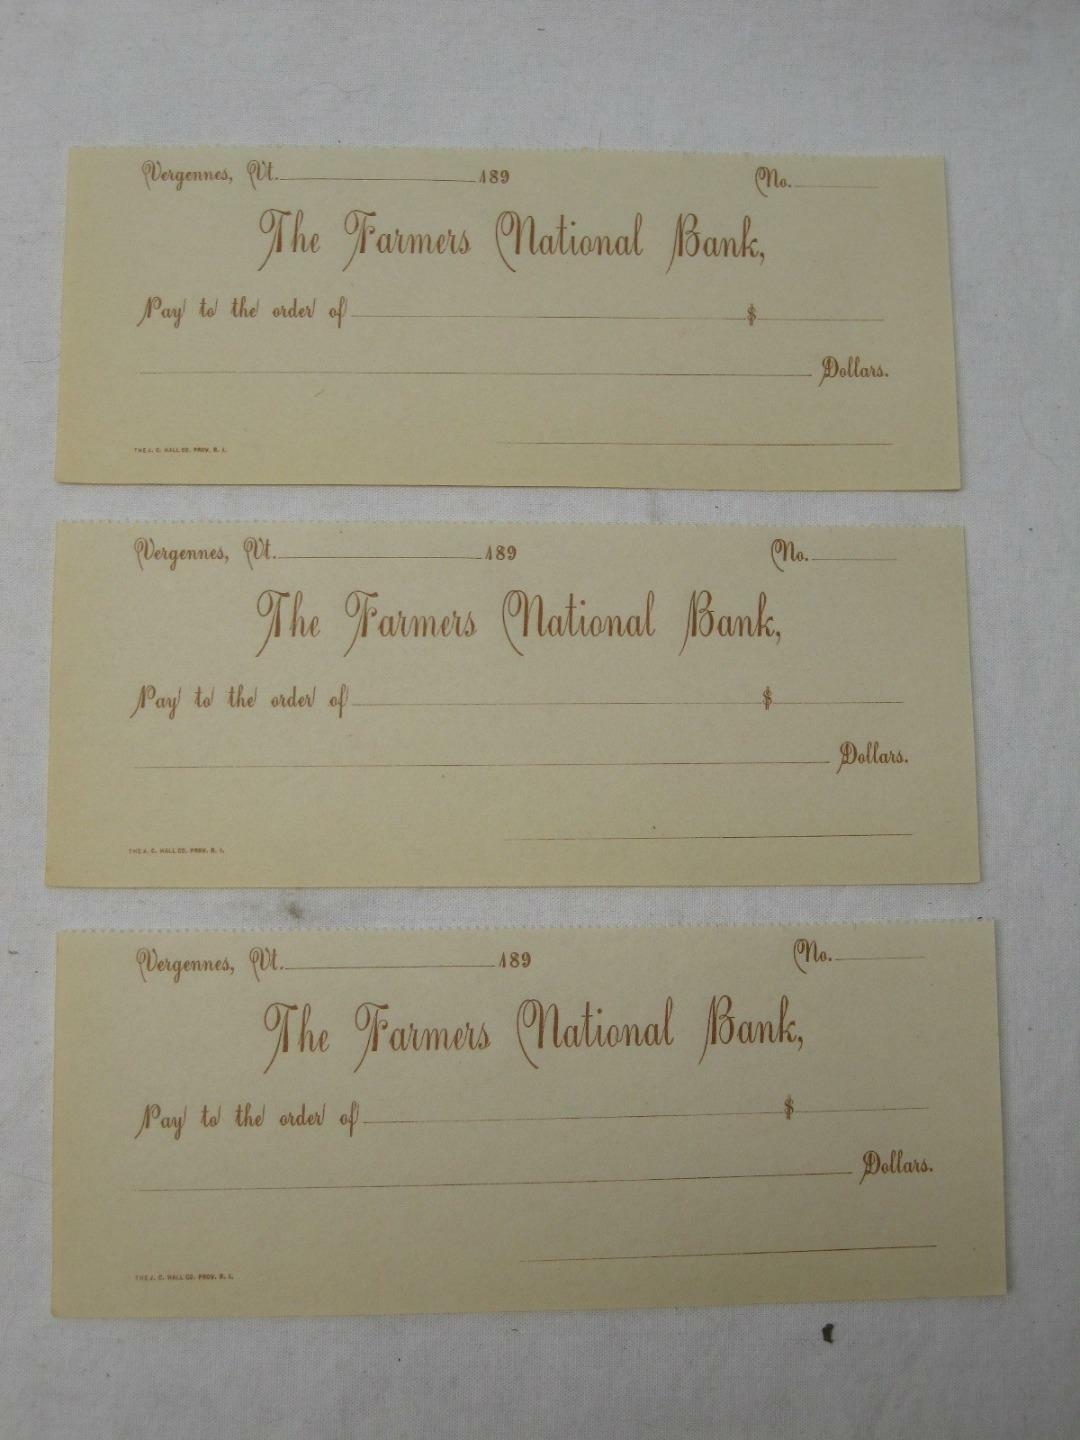 Vergennes, Vt. 189 No.
The Farmers National Bank,
Pay to the order of $
Dollars.
THE J. C. HALL CO. PROV. R. I.
Vergennes, Vt. 189 No.
The Farmers National Bank,
Pay to the order of $
Dollars.
THE J. C. HALL CO. PROV. R. I.
Vergennes, Vt. 189 No.
The Farmers National Bank,
Pay to the order of $
Dollars.
THE J. C. HALL CO. PROV. R. I.